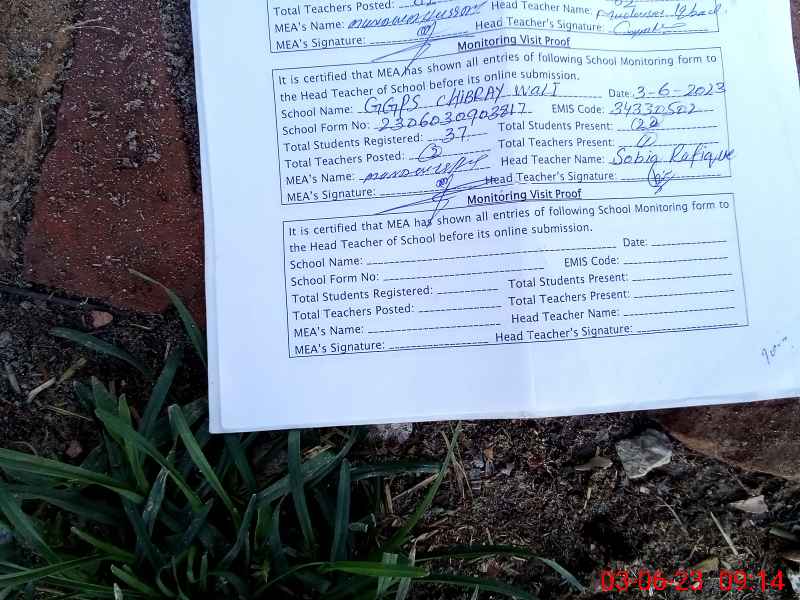 Total Teachers Posted: Head Teacher Name: Mudassar Iqbal
MEA's Name: Head Teacher's Signature:
MEA's Signature:
Monitoring Visit Proof
It is certified that MEA has shown all entries of following School Monitoring form to
the Head Teacher of School before its online submission.
School Name: GGPS CHIBRAY WALI Date: 3-6-2023
School Form No: EMIS Code: 34330502
Total Students Registered: 37 Total Students Present: 22
Total Teachers Posted: 2 Total Teachers Present: 1
MEA's Name: Head Teacher Name: Sobia Rafique
MEA's Signature: Head Teacher's Signature:
Monitoring Visit Proof
It is certified that MEA has shown all entries of following School Monitoring form to
the Head Teacher of School before its online submission.
School Name: Date:
School Form No: EMIS Code:
Total Students Registered: Total Students Present:
Total Teachers Posted: Total Teachers Present:
MEA's Name: Head Teacher Name:
MEA's Signature: Head Teacher's Signature:
03-06-23 09:14